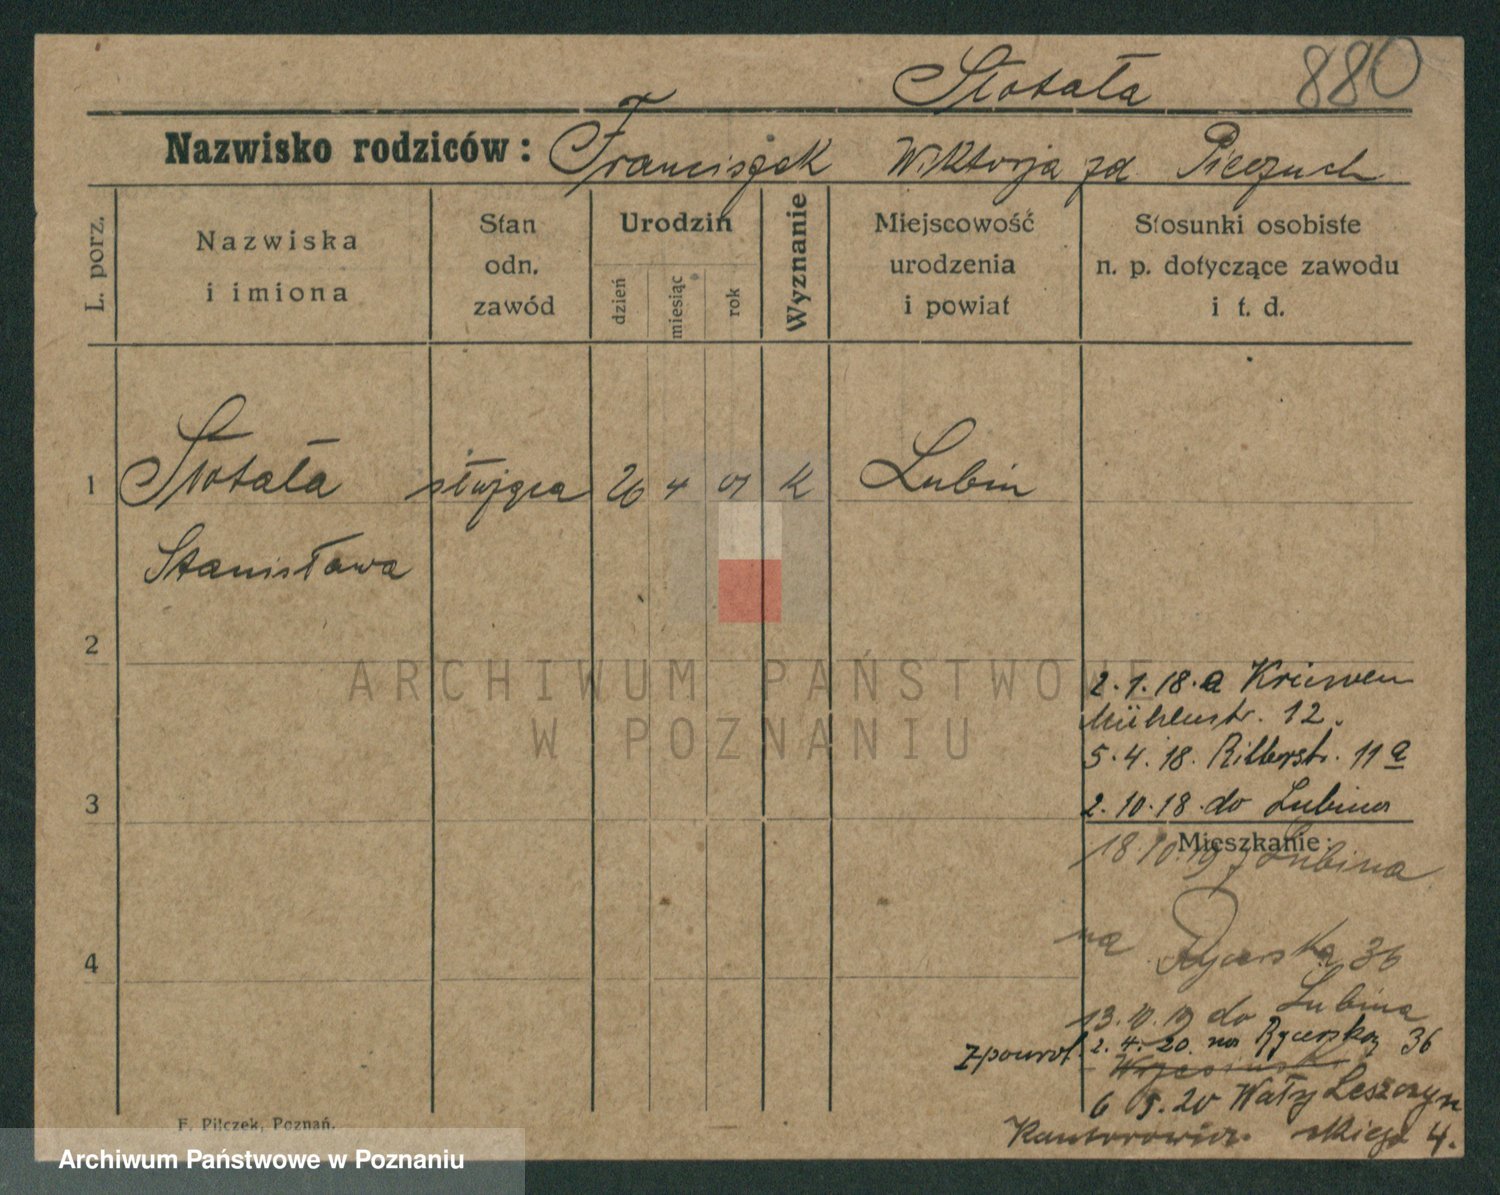 Słotała 880
Nazwisko rodziców: Franciszek Wiktorja zd. Pieczuch
L. porz.
Nazwiska
i imiona
Stan
odn.
zawód
Urodzin
dzień
miesiąc
rok
Wyznanie
Miejscowość
urodzenia
i powiat
Stosunki osobiste
n. p. dotyczące zawodu
i t. d.
1 Słotała służąca 26 4 01 k Lubin
Stanisława
2
ARCHIWUM PAŃSTWOWE
W POZNANIU
2.1.18. a Kriewen
Mühlenstr. 12.
5.4.18. Ritterstr. 11 a
3
2.10.18. do Lubina
Mieszkanie:
18.10.19 z Lubina
na Rycerska 36
4
13.10.19 do Lubina
Zpowrot. 2.4.20. na Rycerską 36
6 5.20 Wały Leszczyń
skiego 4.
F. Pilczek, Poznań.
Archiwum Państwowe w Poznaniu